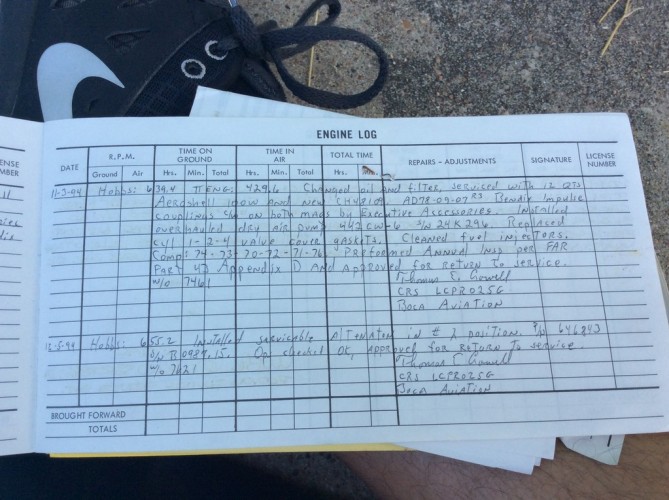 ENGINE LOG
DATE R.P.M. TIME ON GROUND TIME IN AIR TOTAL TIME REPAIRS - ADJUSTMENTS SIGNATURE LICENSE NUMBER
Ground Air Hrs. Min. Total Hrs. Min. Total Hrs.
ENSE
MBER
11-3-94 Hobbs: 639.4 TT ENG: 429.6 Changed oil and filter, serviced with 12 QTS
Aeroshell 100W and new CH48109 AD78-09-07 R3 Bendix Impulse
couplings c/w on both mags by Executive Accessories. Installed
overhauled dry air pump 442CW-6 S/N 24K296 Replaced
cyl 1-2-4 valve cover gaskets. Cleaned fuel injectors.
Comp: 74-73-70-72-71-76 Preformed Annual Insp per FAR
Part 43 Appendix D and approved for return to service.
W/O 7461
CRS LCPR025G
Boca Aviation
12-5-94 Hobbs: 655.2 Installed servicable Alternator in # 2 position. P/N 646843
S/N B 0989515. Op checked OK, approved for return to service.
W/O 7621
CRS LCPR025G
Boca Aviation
BROUGHT FORWARD
TOTALS